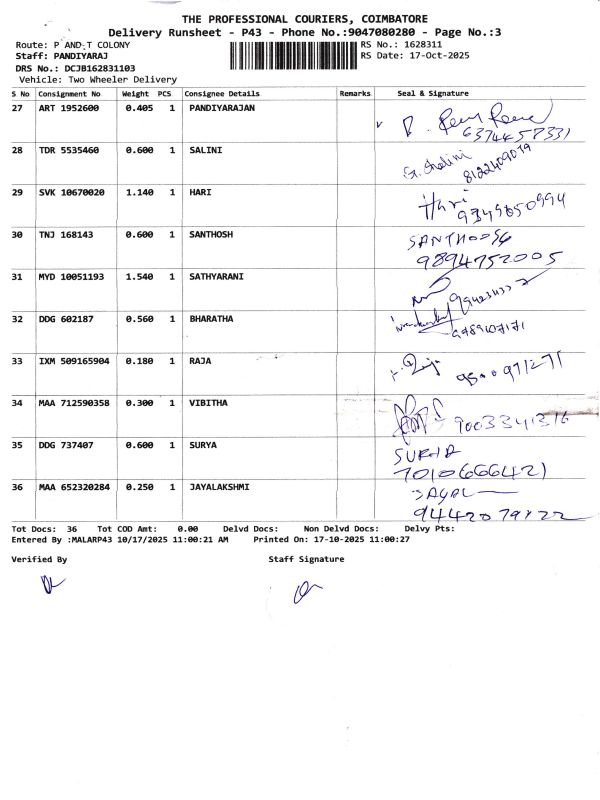 THE PROFESSIONAL COURIERS, COIMBATORE
Delivery Runsheet - P43 - Phone No.:9047080280 - Page No.:3
Route: P AND T COLONY RS No.: 1628311
Staff: PANDIYARAJ RS Date: 17-Oct-2025
DRS No.: DCJB162831103
Vehicle: Two Wheeler Delivery
S No Consignment No Weight PCS Consignee Details Remarks Seal & Signature
27 ART 1952600 0.405 1 PANDIYARAJAN
6374457331
28 TDR 5535460 0.600 1 SALINI
G. Shalini
8122409079
29 SVK 10670020 1.140 1 HARI Hari
9349850994
30 TNJ 168143 0.600 1 SANTHOSH SANTHOSH
9894752005
31 MYD 10051193 1.540 1 SATHYARANI
32 DDG 602187 0.560 1 BHARATHA
33 IXM 509165904 0.180 1 RAJA
9500971271
34 MAA 712590358 0.300 1 VIBITHA
9003341316
35 DDG 737407 0.600 1 SURYA
7010666421
36 MAA 652320284 0.250 1 JAYALAKSHMI
Tot Docs: 36 Tot COD Amt: 0.00 Delvd Docs: Non Delvd Docs: Delvy Pts:
Entered By :MALARP43 10/17/2025 11:00:21 AM Printed On: 17-10-2025 11:00:27
Verified By Staff Signature